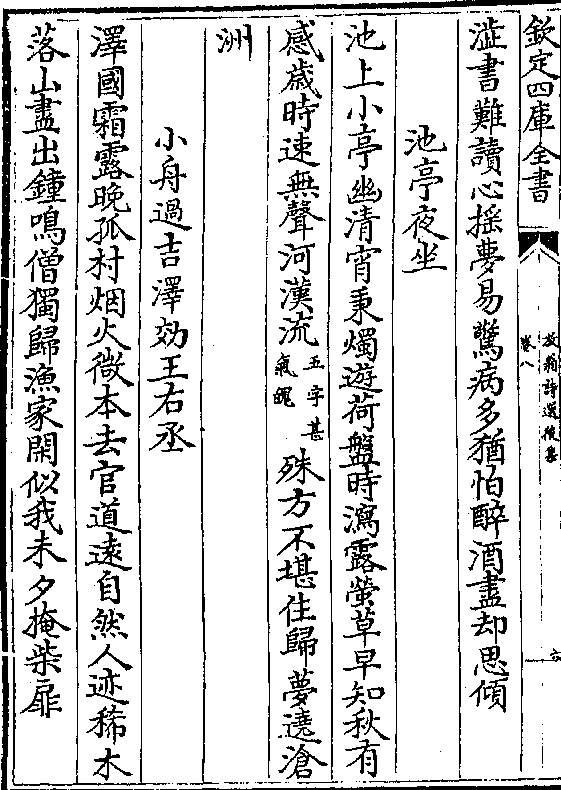 欽定四庫全書
放翁詩選後集
卷八
六
澁書難讀心揺夢易驚病多猶怕醉酒盡却思傾
池亭夜坐
池上小亭幽清宵秉燭遊荷盤時瀉露螢草早知秋有
感歲時速無聲河漢流五字甚氣魄殊方不堪住歸夢遶滄
洲
小舟過吉澤効王右丞
澤國霜露晚孤村烟火微本去官道逺自然人迹稀木
落山盡出鐘鳴僧獨歸漁家閑似我未夕掩柴扉